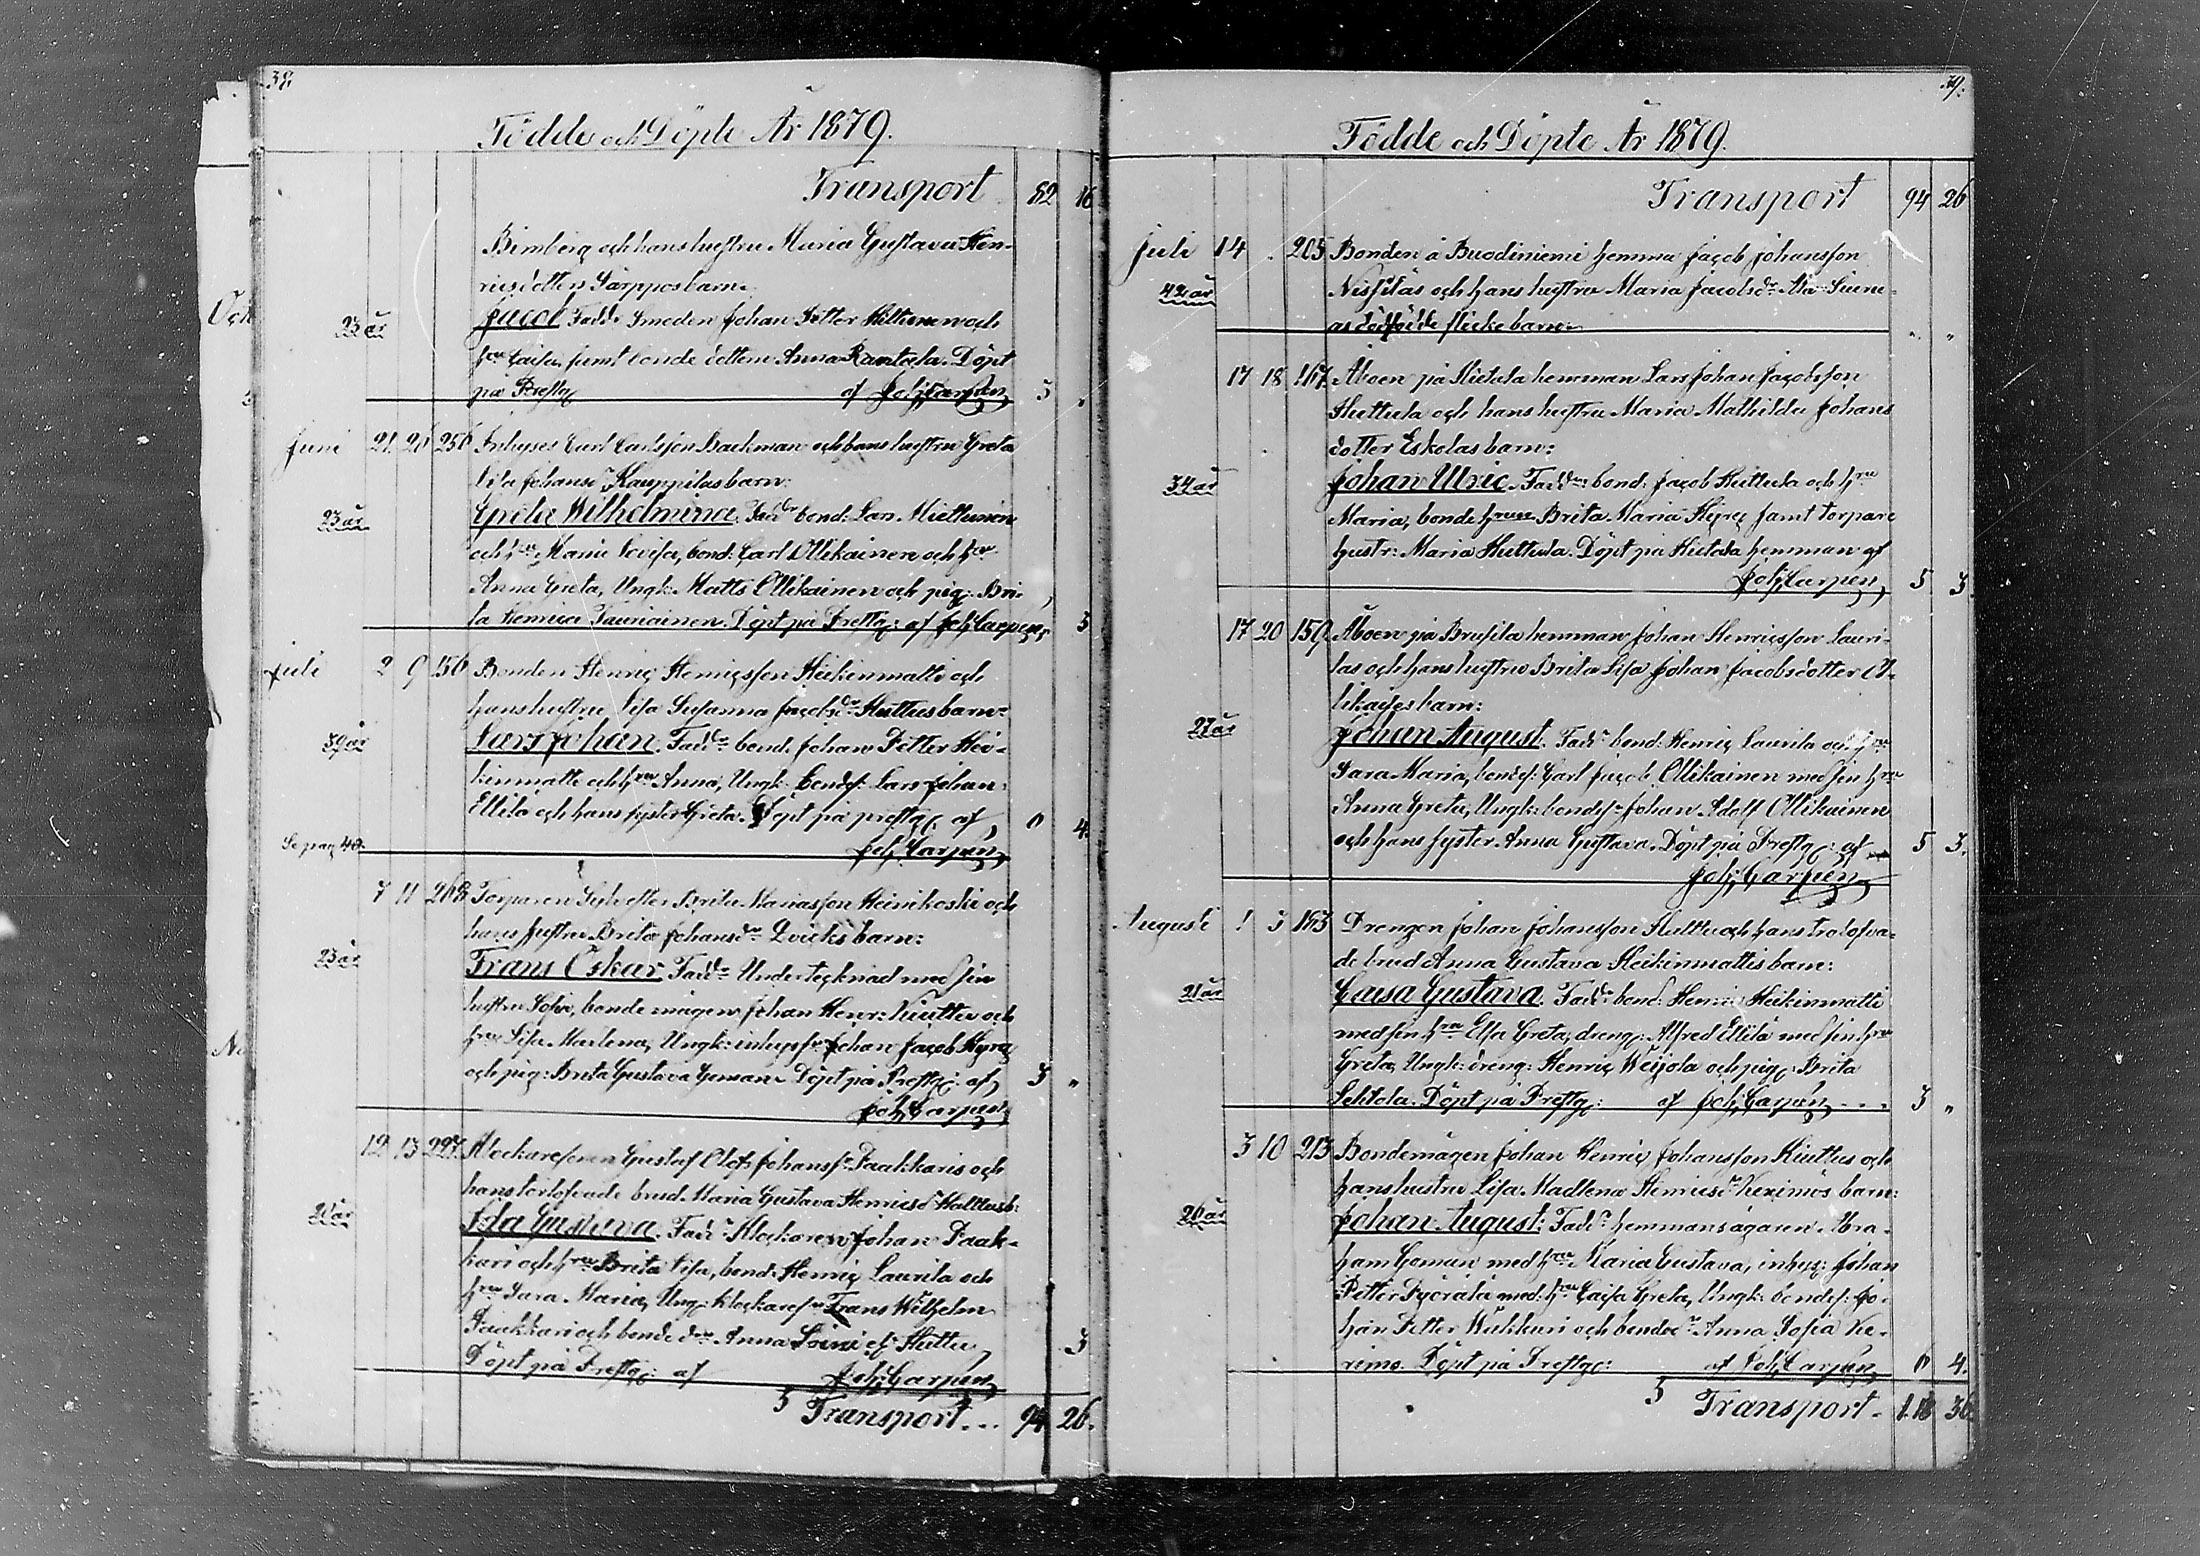 38.
Födde och Döpte År 1879.
Transport 82 16
Bimberg och hans hustru Maria Gustava Hen-
ricsdotter Särppos barn:
23 år
Jacob. Fadd: Smeden Johan Petter Hiltunen och
hru Caisa, samt bonde dottern Anna Rantala. Döpt
på Prestg. af Joh: Carpen, 5 "
Juni 21. 20 250 Inhyses Carl Carlsson Backman och hans hustru Greta
Lisa Johansdr Kauppilas barn:
23 år
Greta Wilhelmina. Faddr bond: Lars Miettinen
och hru Maria Lovisa, bond: Carl Ollikainen och hru
Anna Greta, Ungk: Matts Ollikainen och pig: Bri-
ta Henrica Tauriainen. Döpt på Prestg: af Joh: Carpen, 3
Juli 2 9 156 Bonden Henric Henricsson Heikinmatti och
hans hustru Lisa Susanna Jacobsdr Huttus barn:
39 år
Lars Johan. Faddr bond. Johan Petter Hei-
kinmatti och hru Anna, Ungk: bondes: Lars Johan
Ellilä och hans syster Greta. Döpt på prestg. af 0 4.
Se pag 40. Joh: Carpen,
7 11 268 Torparen Sylvester Brita Mariasson Heinikoski och
hans hustru Brita Johansdr Qvicks barn:
23 år
Frans Oskar. Faddr Undertecknad med sin
hustru Sofia, bondemågen Johan Henr: Kiuttu och
hru Lisa Madlena, Ungk: inhyses Johan Jacob Hyry
och pig: Brita Gustava Goman. Döpt på Prestg: af 3 "
Joh: Carpen,
12 13 227. Klockaresonen Gustaf Olof Johanss: Paakkaris och
hans trolofvade brud Maria Gustava Henricsdr Huttus b:
20 år
Ida Gustava. Faddr Klockaren Johan Paak-
kari och hru Brita Lisa, bond: Henric Laurila och
hru Sara Maria, Ung: klockares Frans Wilhelm
Paakkari och bondedr Anna Huttu,
Döpt på Prestg: af Joh: Carpen, 3
5 Transport... 94 26.
39.
Födde och Döpte År 1879.
Transport 94 26
Juli 14 . 205 Bonden å Buodiniemi hemma Jacob Johansson
42 år
och hans hustru Maria Jacobsdr
as dödfödde flickebarn. " "
17 18 167 Åboen på Hietala hemman Lars Johan Jacobsson
Huttula och hans hustru Maria Mathilda Johans
dotter Eskolas barn:
34 år
Johan Ulric. Faddr bond: Jacob Huttula och hru
Maria, bonde hrun Brita Maria Hyry samt torpare
hustr: Maria Huttula. Döpt på Hietala hemman af
Joh: Carpen, 5 3.
17 20 159 Åboen på Brusila hemman Johan Henricsson Lauri-
las och hans hustru Brita Lisa Johan Jacobsdotter Ol-
likaises barn:
27 år
Johan August. Faddr bond: Henric Laurila och hru
Sara Maria, bondes: Carl Jacob Ollikainen med sin hru
Anna Greta, Ungk: bondes Johan Adolf Ollikainen
och hans syster Anna Gustava. Döpt på Prestg: af 5 3.
Joh: Carpen,
Augusti 1 3 163 Drengen Johan Johansson Huttu och hans trolofva-
de brud Anna Gustava Heikinmattis barn:
21 år
Caisa Gustava. Faddr bond: Henric Heikinmatti
med sin hru Elsa Greta, dreng: Alfred Ellilä med sin hru
Greta, Ungk: dreng: Henric Weijola och pig: Brita
Lehtola. Döpt på Prestg: af Joh: Carpen, ... 3 "
3 10 213 Bondemågen Johan Henric Johansson Kiuttus och
hans hustru Lisa Madlena Henricsdr Kerimös barn:
26 år
Johan August: Faddr hemmansägaren Abra-
ham Goman med hru Maria Gustava, inhys: Johan
Petter Pyörälä med hru Caisa Greta, Ungk: bondes: Jo-
han Petter Wiikkuri och bondedr Anna Sofia Ke-
rimo. Döpt på Prestg: af Joh: Carpen, 0 4.
5 Transport. 118 36.